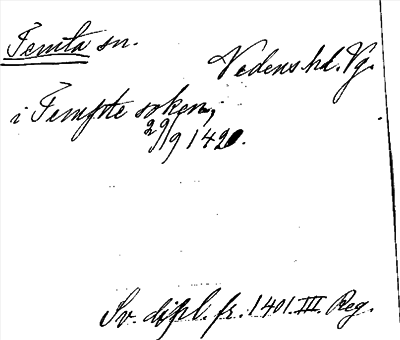 Femta sn.
Vedens hd. Vg.
i Fempte soken,
29/9 1420.
Sv. dipl. fr. 1401. III. Reg.